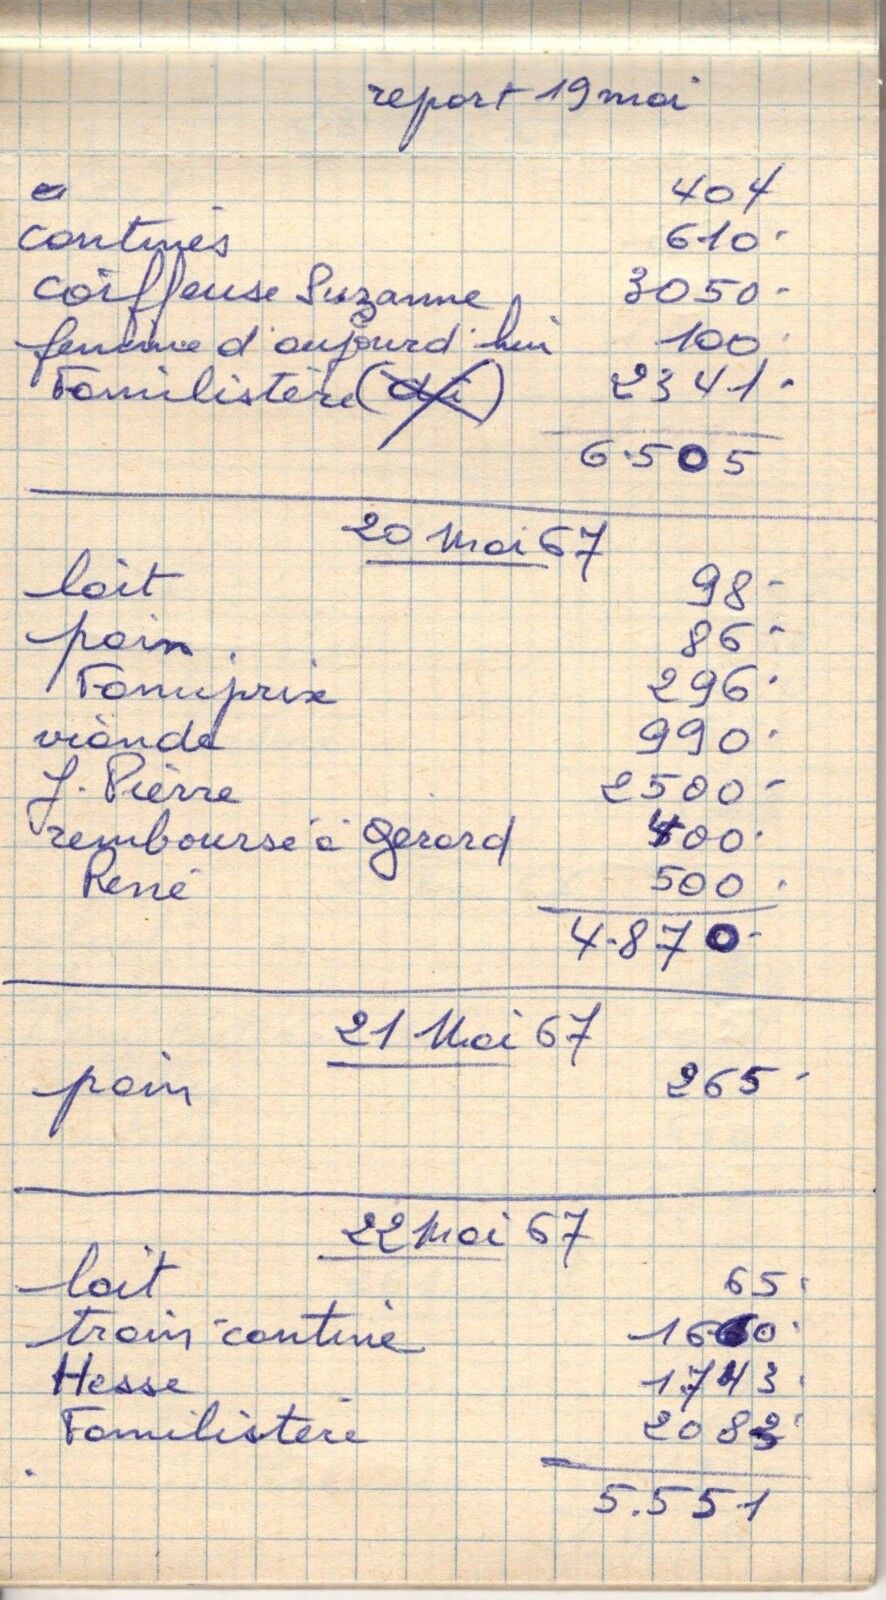 report 19 mai
404
cantines 610.
coiffeuse Suzanne 3050-
femme d'aujourd'hui 100.
Familistère 2341.
6.505
20 Mai 67
lait 98-
pain 86-
Famiprix 296.
viande 990.
J. Pierre 2500-
remboursé à Gérard 400.
René 500.
4.870-
21 Mai 67
pain 265-
22 Mai 67
lait 65.
train-cantine 1660.
Hesse 1743.
Familistère 2083.
5.551